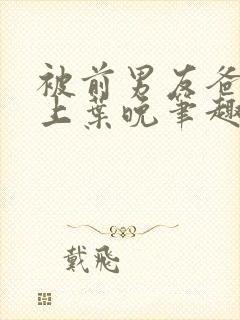 被前男友爸
上葉晚筆趣
戴飛